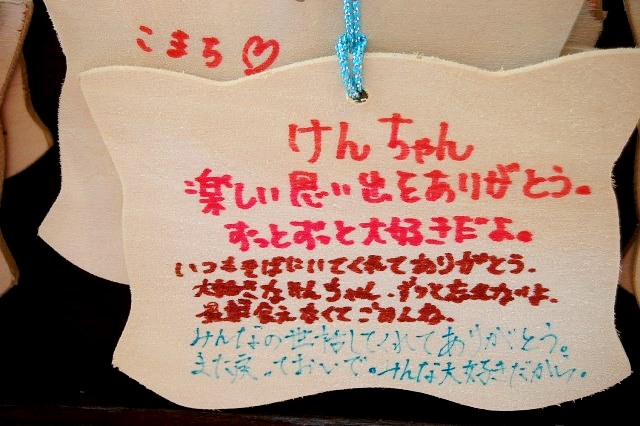 こまち♡
けんちゃん
楽しい思い出をありがとう。
ずっとずっと大好きだよ。
いつもそばにいてくれてありがとう。
大好きなけんちゃん、ずっと忘れないよ。
最期会えなくてごめんね。
みんなの世話してくれてありがとう。
また戻っておいで。みんな大好きだから。